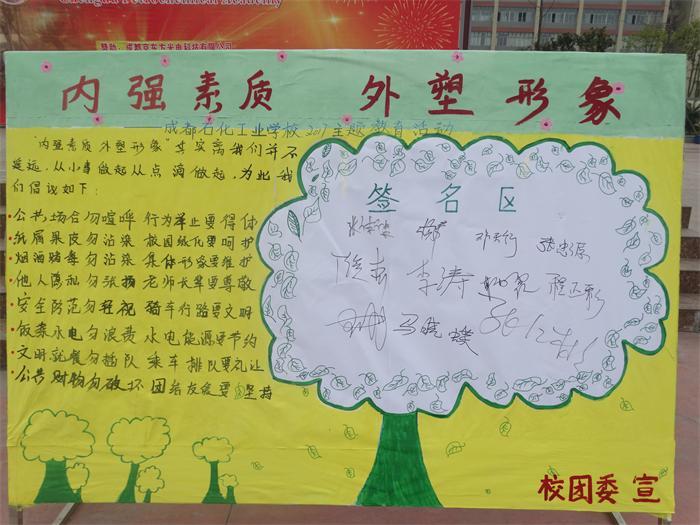 Chengdu Petrochemical Academy
赞助:成都京东方光电科技有限公司
内强素质 外塑形象
成都石化工业学校2017主题教育活动
"内强素质 外塑形象"其实离我们并不
遥远,从小事做起从点滴做起,为此我
们倡议如下:
·公共场合勿喧哗 行为举止要得体
·纸屑果皮勿沾染 校园绿化要呵护
·烟酒赌毒勿沾染 集体形象要维护
·他人隐私勿张扬 老师长辈要尊敬
·安全防范勿轻视 骑车行路要文明
·饭菜水电勿浪费 水电能源要节约
·文明就餐勿插队 乘车排队要礼让
·公共财物勿破坏 团结友爱要坚持
签名区
李涛 程正彬
马晓蝶
校团委 宣